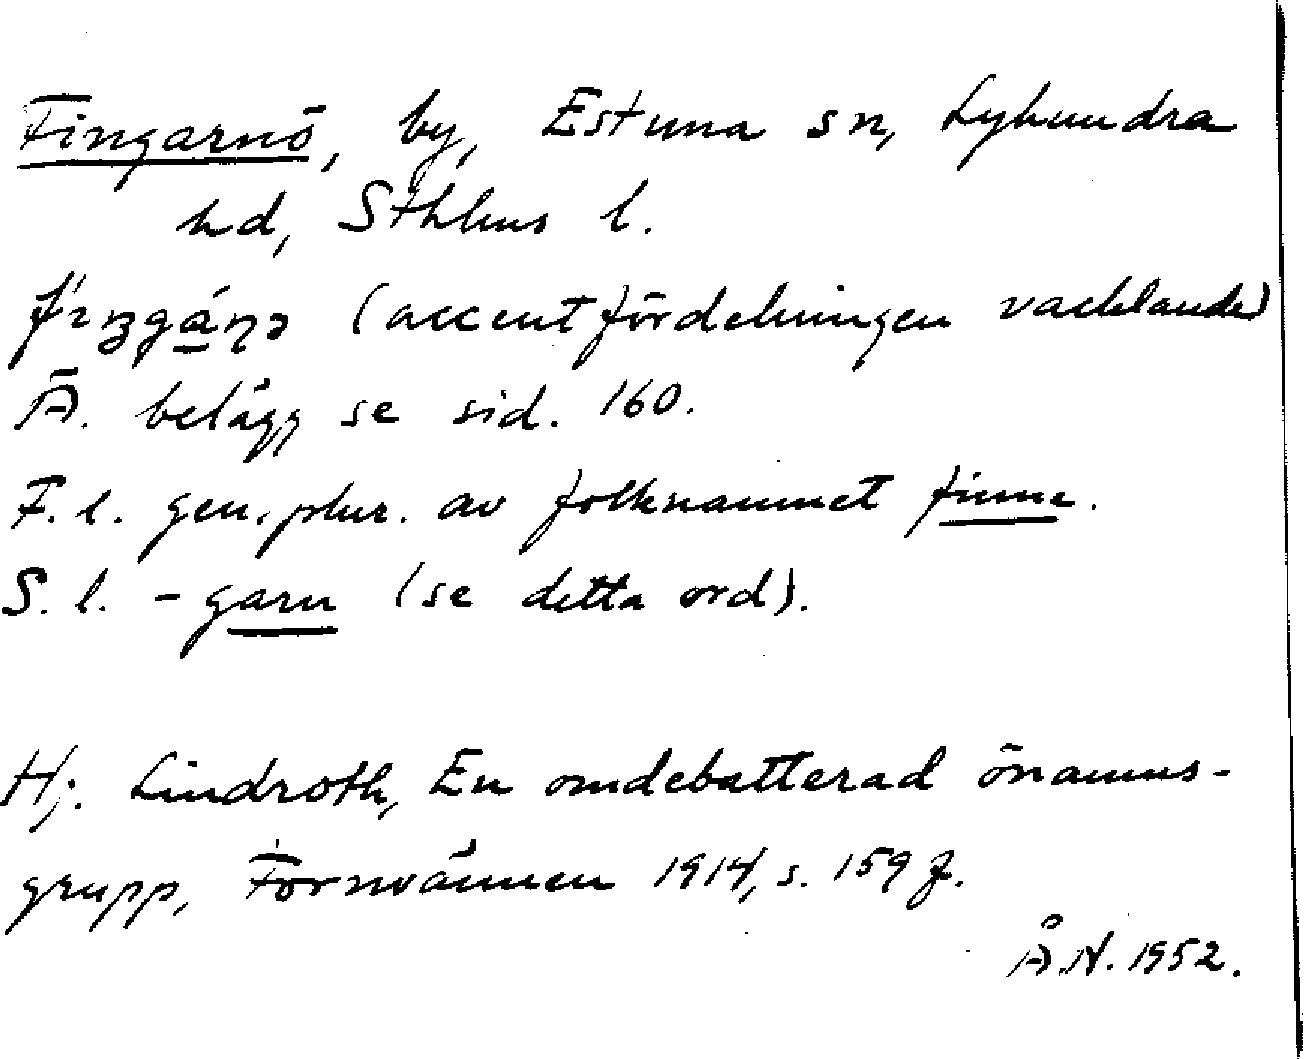 Fingarnö, by, Estuna sn, Lyhundra
hd, Sthlms l.
(accentfördelningen vacklande)
Ä. belägg se sid. 160.
F. l. gen. plur. av folknamnet finne.
S. l. - garn (se detta ord).
Hj. Lindroth, En omdebatterad önamns-
grupp, Fornvännen 1914, s. 159 f.
Å.N. 1952.